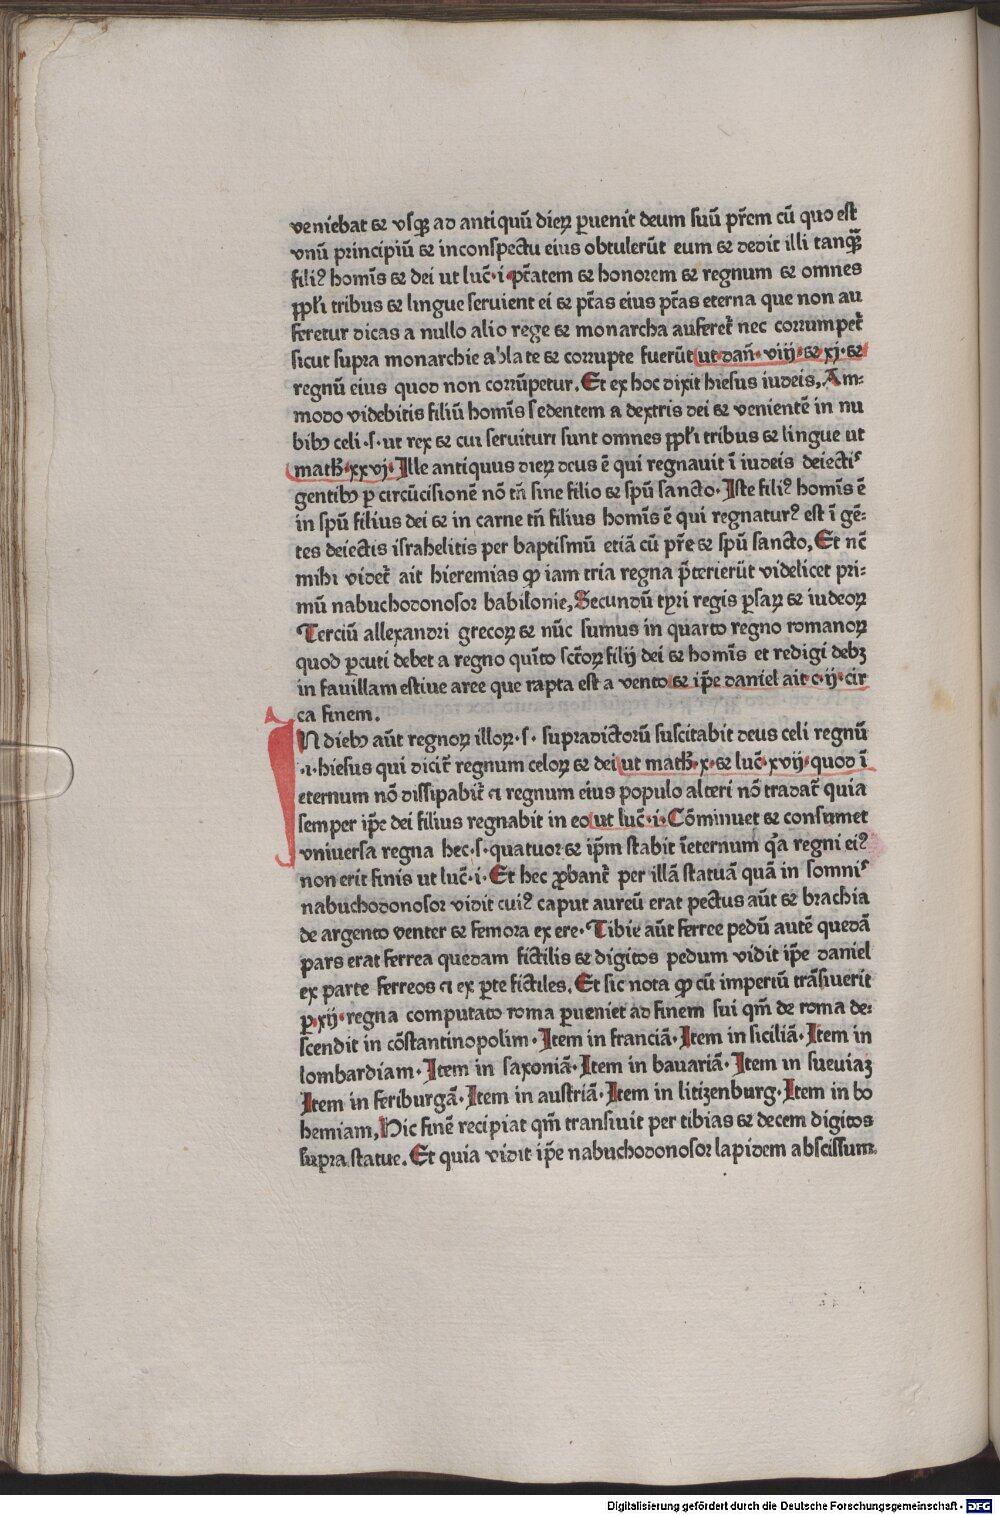 veniebat et vsqꝫ ad antiquū dieꝝ ꝑuenit deum suū pr̄em cū quo est
vnū principiū et inconspectu eius obtulerūt eum et dedit illi tanqꝫ̄
filiꝰ homīs et dei ut luc̄·i·pt̄atem et honorem et regnum et omnes
ppl̄i tribus et lingue seruient ei et pt̄as eius pt̄as eterna que non au
feretur dicas a nullo alio rege et monarcha auferet̄ nec corrumpet̄
sicut supra monarchie ablate et corrupte fuerūt ut dan̄·viij·et xj·et
regnū eius quod non corrūpetur. Et ex hoc dixit hiesus iudeis, Am⸗
modo videbitis filiū homīs sedentem a dextris dei et venientē in nu
bibꝫ celi·s·ut rex et cui seruituri sunt omnes ppl̄i tribus et lingue ut
math̄·xxvj·Ille antiquus dieꝝ deus ē qui regnauit ī iudeis deiectis
gentibꝫ ꝑ circūcisionē nō tn̄ sine filio et spū sancto·Iste filiꝰ homīs ē
in spū filius dei et in carne tn̄ filius homīs ē qui regnaturꝰ est ī gē⸗
tes deiectis israhelitis per baptismū etiā cū pr̄e et spū sancto, Et nc̄
mihi videt̄ ait hieremias ꝙ iam tria regna p̄terierūt videlicet pri⸗
mū nabuchodonosor babilonie, Secundū tyri regis ꝑsaꝝ et iudeoꝝ
Terciū allexandri grecoꝝ et nūc sumus in quarto regno romanoꝝ
quod ꝑcuti debet a regno quīto sct̄oꝝ filij dei et homīs et redigi debꝫ
in fauillam estiue aree que rapta est a vento et ip̄e daniel ait c·ij·cir
ca finem.
IN diebꝫ aūt regnoꝝ illoꝝ·s·supradictorū suscitabit deus celi regnū
·i·hiesus qui dicit̄ regnum celoꝝ et dei ut math̄·x·et luc̄·xvij·quod ī
eternum nō dissipabit̄ et regnum eius populo alteri nō tradat̄ quia
semper ip̄e dei filius regnabit in eo ut luc̄·i·Cōminuet et consumet
vniuersa regna hec·s·quatuor et ip̄m stabit īeternum qa regni eiꝰ
non erit finis ut luc̄·i·Et hec ꝓbant̄ per illā statuā quā in somnis
nabuchodonosor vidit cuiꝰ caput aureū erat pectus aūt et brachia
de argento venter et femora ex ere·Tibie aūt ferree pedū autē quedā
pars erat ferrea quedam fictilis et digitos pedum vidit ip̄e daniel
ex parte ferreos et ex ꝑte fictiles. Et sic nota ꝙ cū imperiū trāsiuerit
ꝑ·xij·regna computato roma ꝑueniet ad finem sui qm̄ de roma de⸗
scendit in cōstantinopolim·Item in franciā·Item in siciliā·Item in
lombardiam·Item in saxoniā·Item in bauariā·Item in sueuiaꝫ
Item in feriburgā·Item in austriā·Item in litizenburg·Item in bo
hemiam, Hic finē recipiat qm̄ transiuit per tibias et decem digitos
supra statue. Et quia vidit ip̄e nabuchodonosor lapidem abscissum
Digitalisierung gefördert durch die Deutsche Forschungsgemeinschaft - DFG